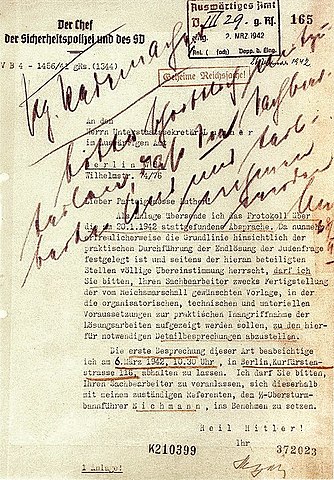 Auswärtiges Amt
D III 29. g. Rs.
2. MRZ. 1942
Anl. ( fach) Dopp. d. Eing.
165
Der Chef
der Sicherheitspolizei und des SD
IV B 4 - 1456/41 gRs. (1344)
1942
Geheime Reichssache!
An den
Herrn Unterstaatssekretär L
im Auswärtigen Amt
Berlin
Wilhelmstr. 74/76
Lieber Parteigenosse Luther!
Als Anlage übersende ich das Protokoll über
die 20.1.1942 stattgefundene Absprache. Da nunmehr
erfreulicherweise die Grundlinie hinsichtlich der
praktischen Durchführung der Endlösung der Judenfrage
festgelegt ist und seitens der hieran beteiligten
Stellen völlige Übereinstimmung herrscht, darf ich
Sie bitten, Ihren Sachbearbeiter zwecks Fertigstellung
der vom Reichsmarschall gewünschten Vorlage, in der
die organisatorischen, technischen und materiellen
Voraussetzungen zur praktischen Inangriffnahme der
Lösungsarbeiten aufgezeigt werden sollen, zu den hier-
für notwendigen Detailbesprechungen abzustellen.
Die erste Besprechung dieser Art beabsichtige
ich am 6. März 1942, 10.30 Uhr , in Berlin, Kurfürsten-
strasse 116, abhalten zu lassen. Ich darf Sie bitten,
Ihren Sachbearbeiter zu veranlassen, sich dieserhalb
mit meinem zuständigen Referenten, dem SS-Obersturm-
bannführer Eichmann , ins Benehmen zu setzen.
Heil Hitler!
Ihr
K210399
372023
1 Anlage!